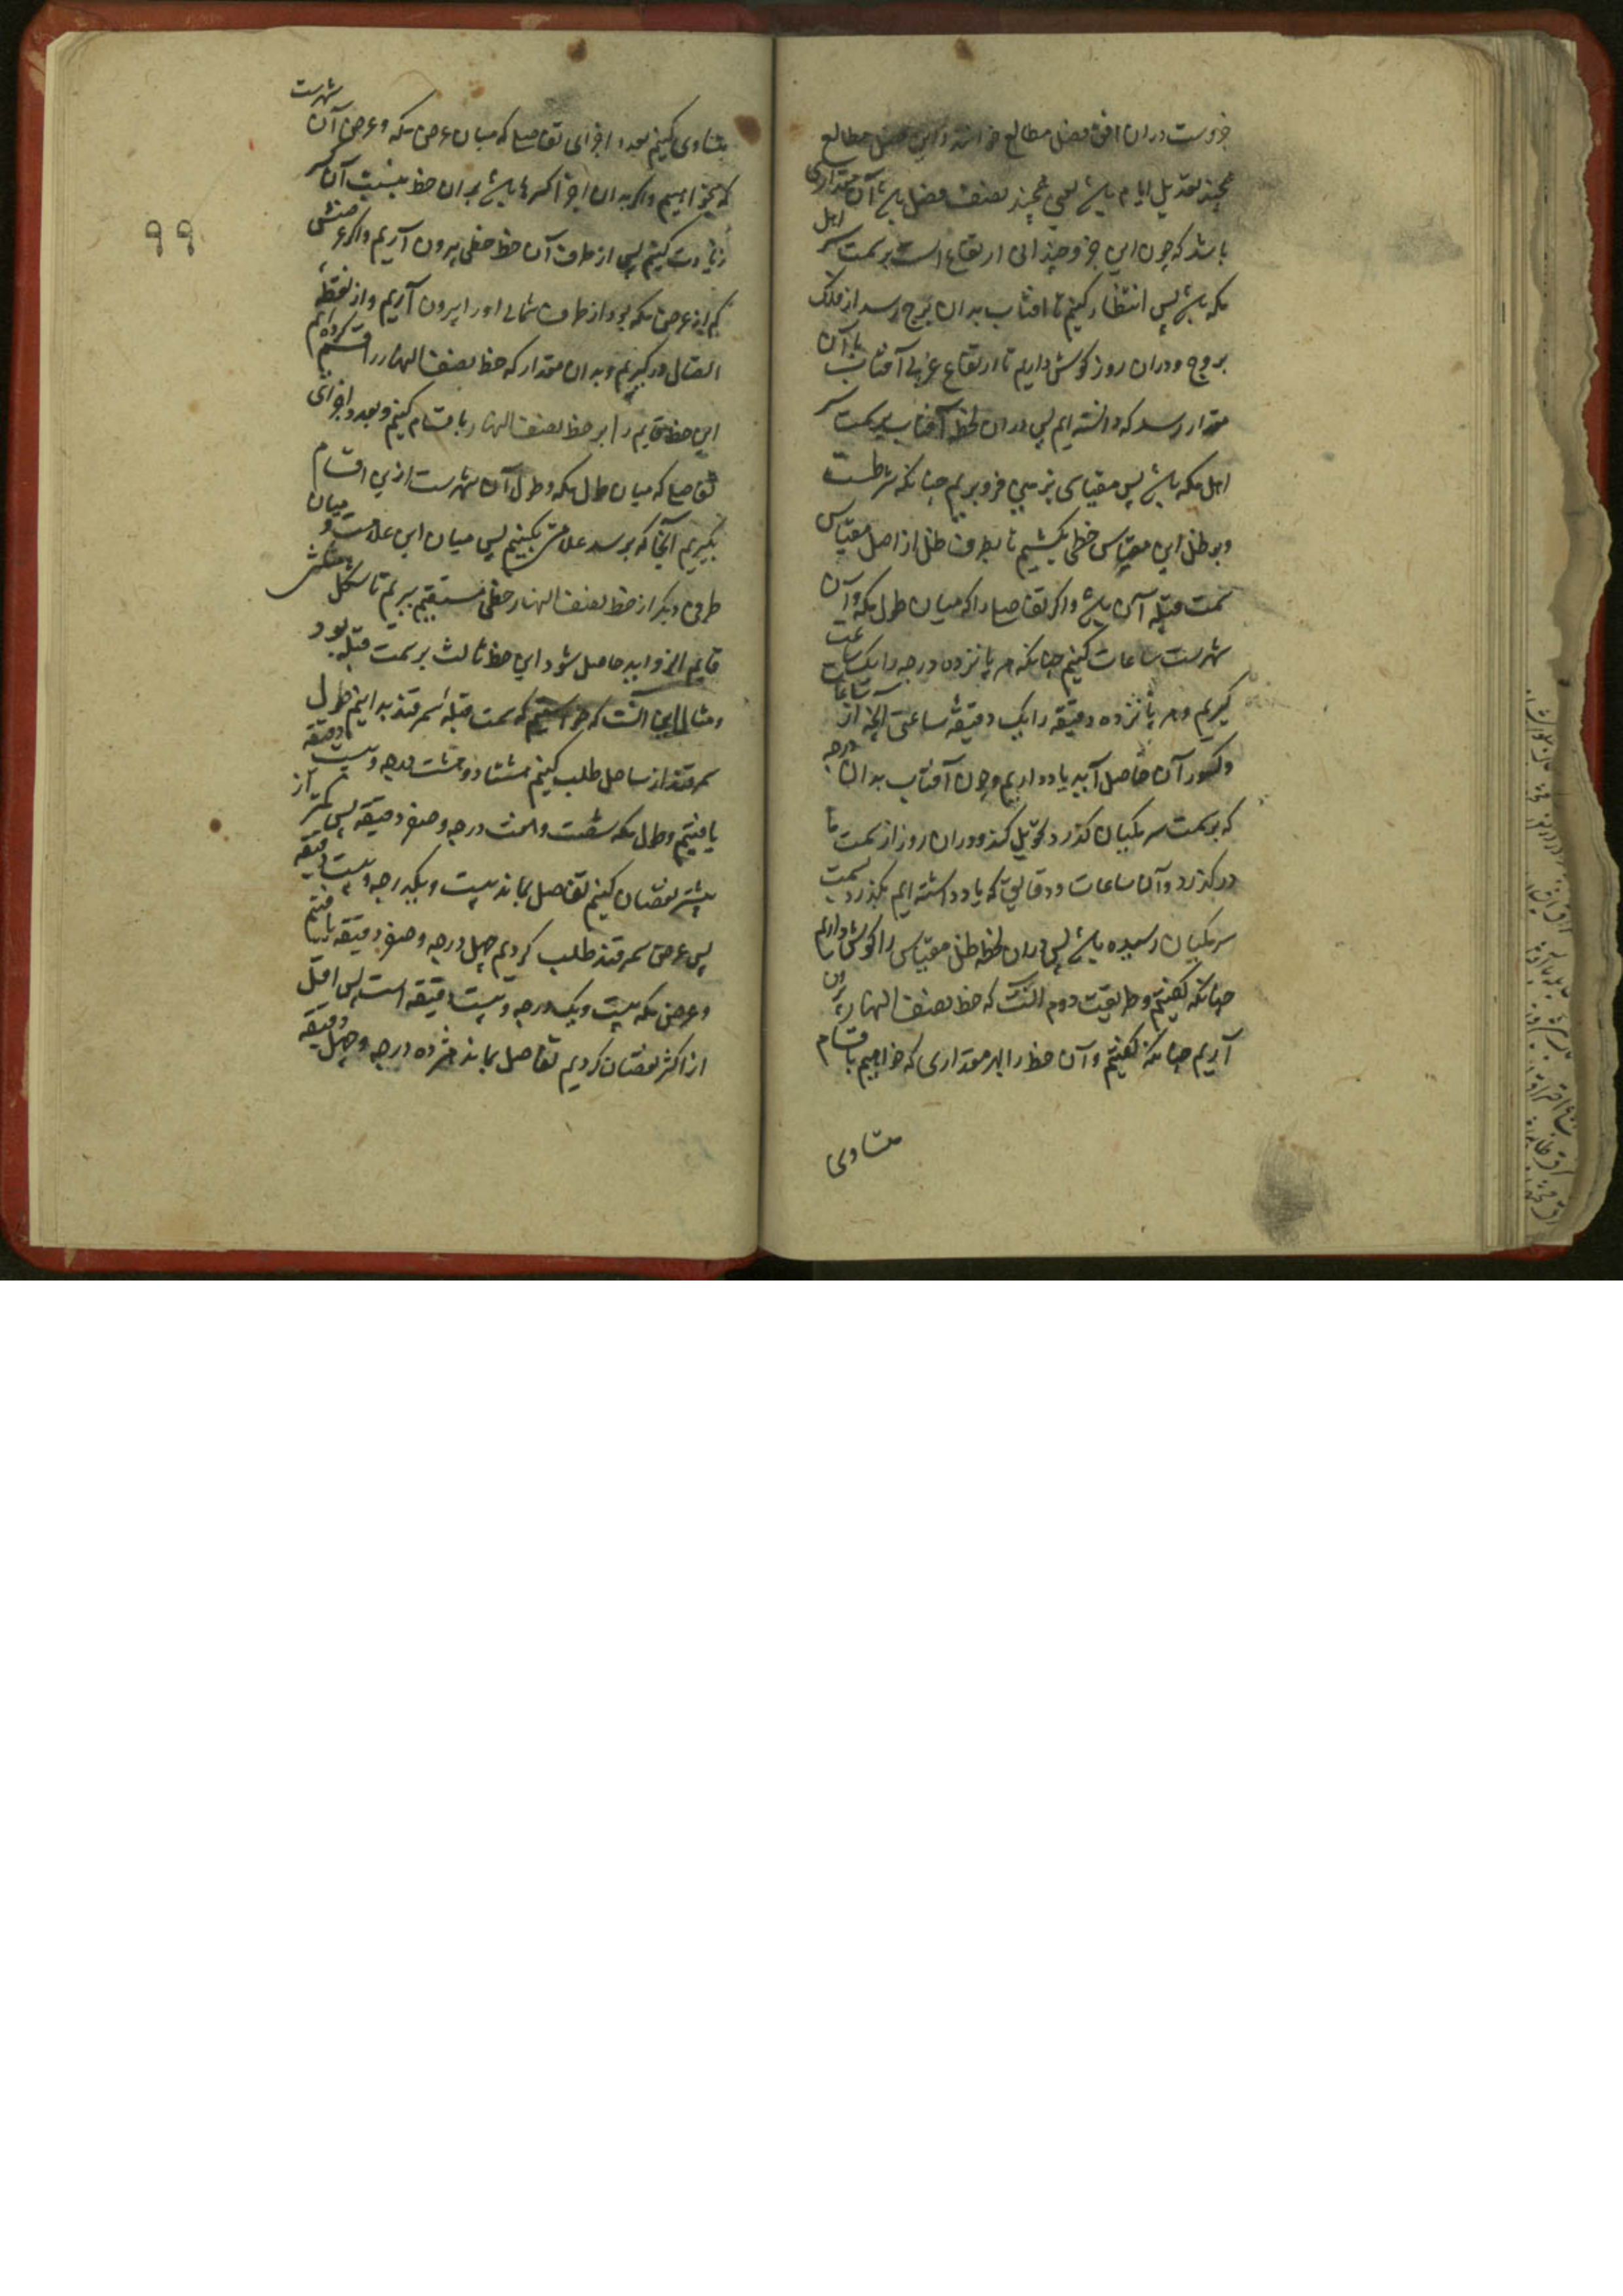 جزوست دران افق فضل مطالع خوانند و این فضل مطالع
بچند تعدیل ایام باشد یعنی بچند نصف فضل باشد آن مقداری
باشد که چون این جزو چندانی ارتفاع است بر سمت سر اهل
مکه باشد پس انتظار کنیم تا افتاب بدان برج رسد از فلک
بروج و دران روز کوش داریم تا ارتفاع غربی آفتاب با آن
مقدار رسد که دانسته ایم پس دران لحظه آفتاب بر سمت سر
اهل مکه باشد پس مقیاسی بزمین فرو بریم چنانکه شرطست
و بر ظل این مقیاس خطی بکشیم تا بطرف ظل از اصل مقیاس
سمت قبله آن باشد و اکر تفاصل را که میان طول مکه و آن
شهرست ساعات کنیم چنانکه هر پانزده درجه را یک ساعت
کیریم و هر پانزده دقیقه را یک دقیقهٔ ساعتی آنچه از ساعات
و کسور آن حاصل آید یاد داریم و چون آفتاب بدان درجه
که بر سمت سر مکیان کذرد تحویل کند و دران روز از سمت ما
درکذرد و آن ساعات و دقایق که یاد داشته ایم بکذرد بسمت
سر مکیان رسیده باشد پس دران لحظه ظل مقیاس را کوش داریم
چنانکه کفتیم و طریقت دوم آنست که خط نصف النهار بیرون
آریم چنانکه کفتیم و آن خط را بهر مقداری که خواهیم باقسام
متساوی
متساوی کنیم بعدد اجزای تفاصل که میان عرض مکه و عرض آن شهرست
که میخواهیم و اکر بدان اجزا کسرها باشد بران خط بنسبت آن کسر
زیادت کنیم پس از طرف آن خط خطی بیرون آریم و اکر عرضش
کم از عرض مکه بود از طرف شمالی او را بیرون آریم و از نقطهٔ
اتصال درکیریم و بدان مقدار که خط نصف النهار را قسیم کرده ایم
این خط قایم را بر خط نصف النهار باقسام کنیم و بعدد اجزای
تفاصل که میان طول مکه و طول آن شهرست ازین اقسام
بکیریم آنجا که برسد علامتی بکنیم پس میان این علامت و میان
طرف دیکر از خط نصف النهار خطی مستقیم ببریم تا شکل مثلثی
قایم الزوایه حاصل شود این خط ثالث بر سمت قبله بود
و مثال این آنست که خواستیم که سمت قبله سمرقند بدانیم طول
سمرقند از ساحل طلب کنیم هشتاد و هشت درجه و بیست دقیقه
یافتیم و طول مکه شصت و هفت درجه و صفر دقیقه پس کمتر از
بیشتر نقصان کنیم تفاصل بماند بیست و یک درجه و بیست دقیقه
پس عرض سمرقند طلب کردیم چهل درجه و صفر دقیقه یافتیم
و عرض مکه بیست و یک درجه و بیست دقیقه است پس اقل
از اکثر نقصان کردیم تفاصل بماند هژده درجه و چهل دقیقه
۹۹